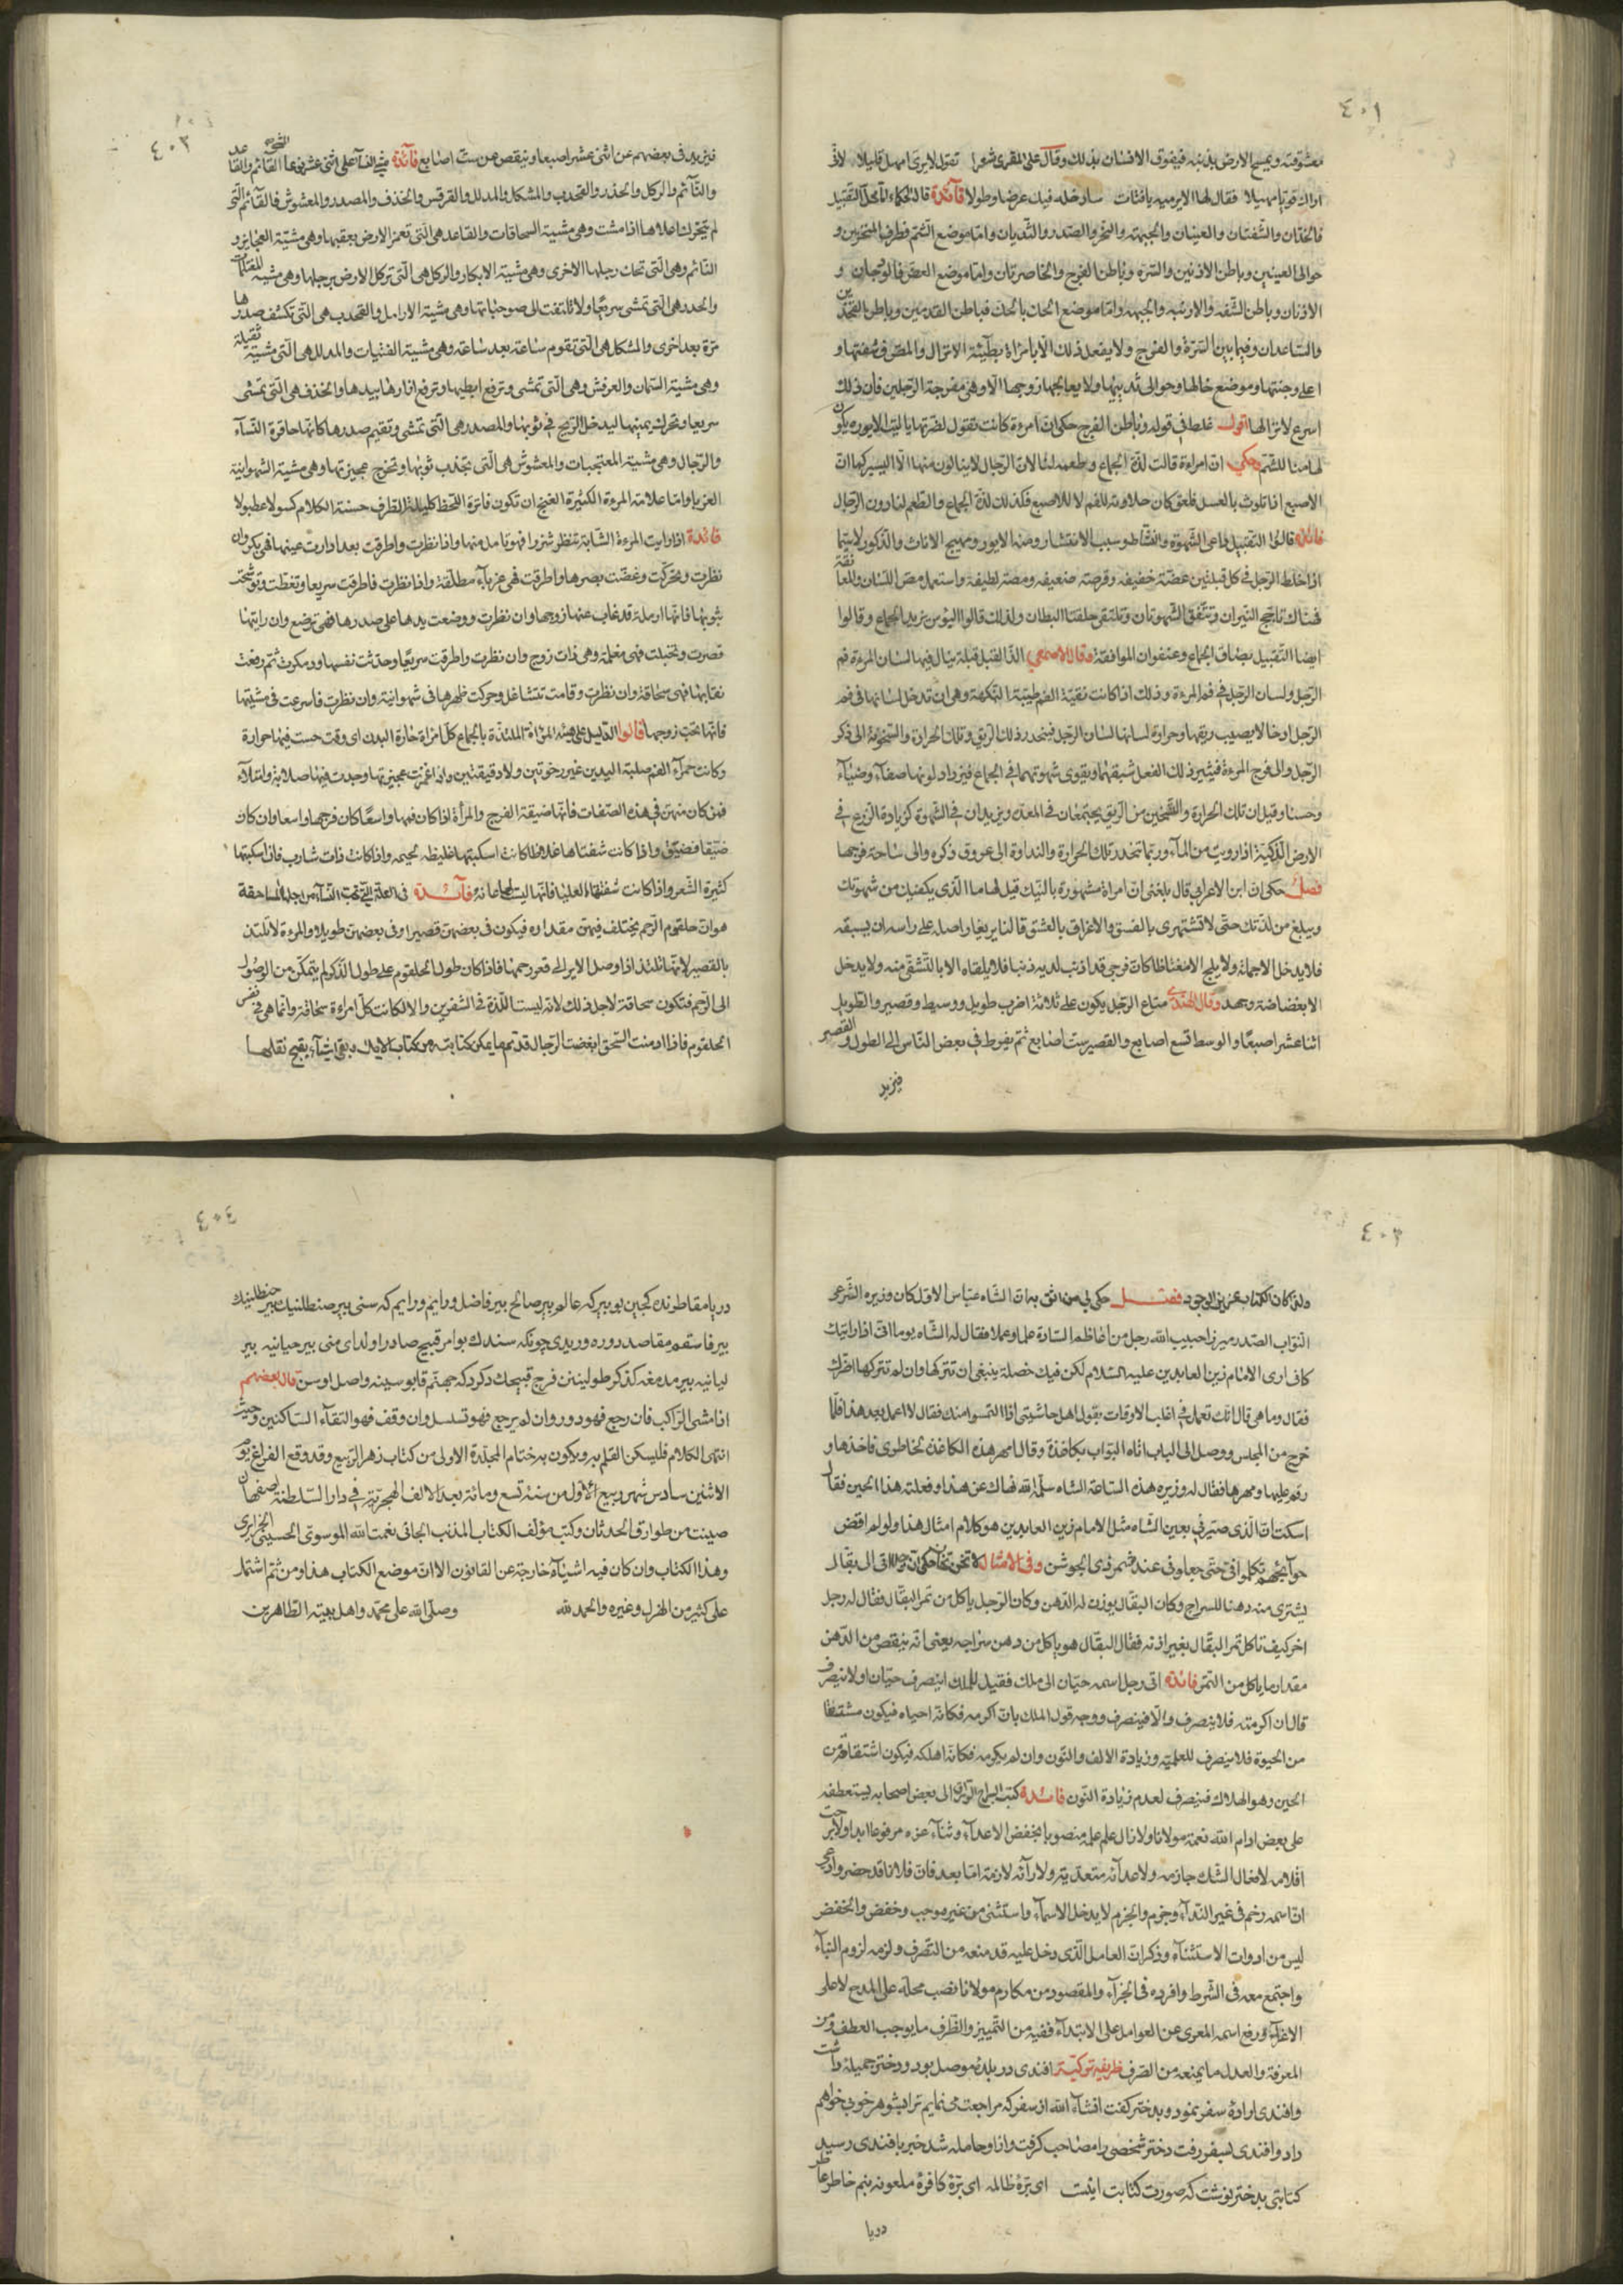 ٤٠١
معشوقته ويمسح الارض بذنبه فيفوق الانسان بذلك وقال على المقرى شعرا تقول لايرى امهل قليلا لانى
اراك قويا مهيلا فقال لها الاير ميه يافتات سادخله فيك عرضا وطولا فآئدة قالت الحكماء امّا محلّ التقبيل
فالخدّان والشّفتان والعينان والجبهة والنحر والصّدر والثّديان وامّا موضع الشّم فطرف المنخرين و
حوالى العينين وباطن الاذنين والسّرّه وباطن الفرج والخاصرتان وامّا موضع العضّ فالوجنان و
الاذنان وباطن الشّفة والارنبة والجبهة وامّا موضع الحك بالحك فباطن القدمين وباطن الفخذين
والسّاعدان وفيما بين السّرّة والفرج ولا يفعل ذلك الّا بامرأة بطيئة الانزال والمصّ فى شفتها و
اعلى وجنتها وموضع خالها وحوالى ثدييها ولا يعالجها زوجها الّا وهى مفرجة الرّجلين فانّ ذلك
اسرع لانزالها اقول غلط فى قوله وباطن الفرج حكى انّ امرءة كانت تقول لضرّتها ياليت الايور يكون
لها منا للشّم وحكى انّ امراءة قالت لذّة الجماع وطعمه لنا لانّ الرّجال لا ينالون منها الّا اليسير كما انّ
الاصبع اذا تلوث بالعسل فلعق كان حلاوته للفم لا للاصبع فكذلك لذّة الجماع والطعم لنا دون الرّجال
فائدة قالوا التقبيل داعى الشّهوة والنشاط وسبب الانتشار ومنه الايور ومهيج الاناث والذّكور لاسيّما
اذا خلط الرّجل فى كل قبلتين عضّة خفيفة وقرصة ضعيفة ومصّة لطيفة واستعمل مصّ اللّسان والمعانقة
فهناك تاجّج النّيران وتتّفق الشّهوتان وتلتقى حلقتا البطان ولذلك قالوا البوس بريد الجماع وقالوا
ايضا التّقبيل بصاق الجماع وعنفوان الموافقة وقال الاصمعى الذّ القبل قبلة ينال فيها لسان المرءة فم
الرّجل ولسان الرّجل فى فم المرءة وذلك اذا كانت نقيّة الفم طيّبة النّكهة وهى ان تدخل لسانها فى فم
الرّجل ادخالا يصيب ريقها وحرارة لسانها لسان الرّجل فينحدر ذلك الرّيق وتلك الحرارة والسّخونة الى ذكر
الرّجل والى فرج المرءة فيثير ذلك الفعل شبقهما ويقوى شهوتهما فى الجماع فيزداد لونهما صفآء وضيآء
وحسنا وقيل ان تلك الحرارة والتسخين من الرّيق يجتمعان فى المعدة ويزيدان فى الشّهوة كزيادة الزّرع فى
الارض الذّكيّة اذا رويت من المآء وربّما تنحدر تلك الحرارة والنداوة الى عروق ذكره والى ساحة فرجها
فصل حكى ان ابن الاعرابى قال بلغنى انّ امراة مشهورة بالنيك قيل لها ما الّذى يكفيك من شهوتك
ويبلغ من لذّتك حتّى لا تشتهرى بالفسق والاغراق بالعشق قالت اير
فلا يدخل الا بجملة ولا يلج
الا بغضاضة وجهد وقال الهندى متاع الرّجل يكون على ثلاثة اضرب طويل ووسيط وقصير والطّويل
اثنا عشر اصبعا والوسط تسع اصابع والقصير ستّ اصابع ثم يفرط فى بعض النّاس الى الطول والقصير
فيزيد
٤٠٢
فيزيد فى بعضهم عن اثنى عشر اصبعا وينقص من ستّ اصابع فآئدة مشى النسآء على اثنى عشر نوعا القآئم والقاعد
والنّآئم والركل والحدر والقحدب والمشكل والمدلل والقرقس والخذف والمصدر والمعشوش فالقآئم الّتى
لم تتحرك اعلاها اذا مشت وهى مشية السحاقات والقاعد هى الّتى تغمز الارض بعقبها وهى مشيّة العجايز و
النائم وهى الّتى تحك رجلها الاخرى وهى مشية الابكار والركل هى الّتى تركل الارض برجلها وهى مشية
والحدر هى الّتى تمشى سريعا ولا تلتفت الى صوحباتها وهى مشية الارامل والقحدب هى الّتى تكشف صدرها
مرّة بعد اخرى والمشكل هى الّتى تقوم ساعة بعد ساعة وهى مشية الفتيات والمدلل هى الّتى مشيته ثقيلة
وهى مشية السمان والعرفش وهى الّتى تمشى وترفع ابطيها وترفع ازارها بيدها والخذف هى الّتى تمشى
سريعا وتحرك يمينها ليدخل الرّيح فى ثوبها والمصدر هى الّتى تمشى وتقيم صدرها كانّها حاقرة النّسآء
والرّجال وهى مشية المعتجبات والمعشوش هى الّتى تجذب ثوبها وتخرج عجيزتها وهى مشية الشهوانية
الغريا وامّا علامة المرءة الكثيرة الغنج ان تكون فاترة اللّحظ كليلة الطرف حسنة الكلام كسولا عطبولا
فائدة اذا رايت المرءة الشّابة تنظر شزرا فهو تامل منها واذا نظرت واطرقت بعد ادارت عينها فهى بكر وان
نظرت وتحركت وغضّت بصرها واطرقت فهى عزبآء مطلّقة واذا نظرت فاطرقت سريعا وتغطّت وتوشّحت
بثوبها فانّها ارملة قد غاب عنها زوجها وان نظرت ووضعت يدها على صدرها فهى ترضع وان رايتها
قصرت وتخبلت فهى مغلمة وهى ذات زوج وان نظرت واطرقت سريعا وحدثت نفسها ثم رفعت
نقابها فهى سحاقة وان نظرت وقامت تتشاغل وحركت ظهرها فهى شهوانية وان نظرت فاسرعت فى مشيتها
فانّها تحب زوجها قالوا الدّليل على هيئة المرءاة الملتذّة بالجماع كلّ امراة حارّة البدن اى وقت جست فيها حرارة
وكانت حمرآء الفم صلبة اليدين غير رخوتين ولا دقيقتين واذا غمزت عجيزتها وجدت فيها صلابة وامتلآء
فمن كان منهنّ فى هذه الصّفات فانّها ضيقة الفرج والمرأة اذا كان فمها واسعًا كان فرجها واسعا وان كان
ضيّقا فضيّق واذا كانت شفتاها غلاظا كانت اسكبتها غليظة لحيمة واذا كانت ذات شارب فان اسكبتها
كثيرة الشّعر واذا كانت شفتها العليا
فآئدة فى العلّة الّتى تحب النّسآء من اجلها المساحقة
هو ان حلقوم الرّحم يختلف فيهنّ مقداره فيكون فى بعضهنّ قصيرا وفى بعضهنّ طويلا والمرءة لا تلتذّ
بالقصير لانّها تلتذ اذا وصل الاير الى قعر رحمها فاذا كان طول الحلقوم على طول الذّكر لم يتمكّن من الوصول
الى الرّحم فتكون سحاقة لاجل ذلك لانّه ليست اللّذة فى الشفرين والا لكانت كلّ امرءة سحّاقة وانّما هى فى نفس
الحلقوم فاذا ادمنت السّحق ابغضت الرّجال قد تم ما يمكن كتابته من كتاب الايك وبقى اشيآء يقبح نقلها
٤٠٣
ولذا كان الكتاب عزيز الوجود فصل حكى لى من اثق به انّ الشّاه عبّاس الاوّل كان وزيره الشّرعى
النّواب الصّدر ميرزا حبيب الله رجل من اعاظم السّادة علما وعملا فقال له الشّاه يوما انّى اذا رايتك
كانّى ارى الامام زين العابدين عليه السّلام لكن فيك خصلة ينبغى ان تتركها وان لم تتركها اضرّك
فقال وما هى قال انّك تعمل فى اغلب الاوقات بقول اهل حاشيتى اذا التمسوا منك فقال لا اعمل بعد هذا فلمّا
خرج من المجلس ووصل الى الباب اتاه البوّاب بكاغذة وقال امهر هذه الكاغذة لخاطرى فاخذها و
رقم عليها ومهرها فقال له وزيره هذه السّاعة الشاه سلّمه الله نهاك عن هذا وفعلته هذا الحين فقال
اسكت انّ الّذى صيّرنى بعين الشّاه مثل الامام زين العابدين هو كلام امثال هذا ولو لم اقض
حوآئجهم تكلّموا فىّ حتّى جعلونى عنده شمر ذى الجوشن وفى الامثال لا تخن تخان حكى انّ رجلا اتى الى بقّال
يشترى منه دهنا للسراج وكان البقّال يوزن له الدّهن وكان الرّجل ياكل من تمر البقّال فقال له رجل
اخر كيف تاكل تمر البقّال بغير اذنه فقال البقّال هو ياكل من دهن سراجه يعنى انّه ينقص من الدّهن
مقدار ما ياكل من التمر فائدة اتى رجل اسمه حيّان الى ملك فقيل للملك اينصرف حيّان او لا ينصرف
قال ان اكرمته فلا ينصرف والّا فينصرف ووجه قول الملك بانّ اكرمه فكانّه احياه فيكون مشتقّا
من الحيوة فلا ينصرف للعلميّة وزيادة الالف والنّون وان لم يكرمه فكانّه اهلكه فيكون اشتقاقه من
الحين وهو الهلاك فينصرف لعدم زيادة النّون فائدة كتب السراج الورّاق الى بعض اصحابه يستعطفه
على بعض ادام الله نعمة مولانا ولا زال علم علمه منصوبا بخفض الاعدآء وثنآء عزه مرفوعا ابدا ولا برحت
اقلامه لافعال الشّك جازمة ولاعدآئه متعدّية ولارآئه لازمة امّا بعد فانّ فلانا قد حضر وادعى
انّ اسمه رخم فى غير النّدآء وجزم والجزم لا يدخل الاسمآء واستثنى من غير موجب وخفض والخفض
ليس من ادوات الاستثنآء وذكر انّ العامل الّذى دخل عليه قد منعه من التّصرف ولزمه لزوم البنآء
واجتمع معه فى الشّرط وافرده فى الجزآء والمقصود من مكارم مولانا نصب محلّه على المدح لا على
الاغرآء ورفع اسمه المعرى عن العوامل على الابتدآء ففيه من التّمييز والظّرف ما يوجب العطف ومن
المعرفة والعدل ما يمنعه من الصّرف ظريفه تركيّة افندى در بلده موصل بود ودختر جميله داشت
وافندى اراده سفر نمود وبدختر گفت انشآء الله از سفر كه مراجعت مى نمايم ترا بشوهر خوب خواهم
داد وافندى بسفر رفت دختر شخصى را مصاحب گرفت واز او حامله شد خبر بافندى رسيد
كتابتى بدختر نوشت كه صورت كتابت اينست اى تزه ظالمه اى تزه كافره ملعونه بنم خاطر عاطر
دريا
٤٠٤
دريا مقاطونده كچين بو بير كه عالم بير صالح بير فاضل ورايم ورايم كه سنى بير
بير فاسقه مقاصد دوره ويريدى چونكه سندن بو امر قبيح صادر اولدى
قال بعضهم
اذا مشى الرّاكب فان رجع فهو دور وان لم يرجع فهو تسلسل وان وقف فهو التقآء السّاكنين وحيث
انتهى الكلام فليسكن القلم به ويكون به ختام المجلّدة الاولى من كتاب زهر الرّبيع وقد وقع الفراغ يوم
الاثنين سادس شهر ربيع الاوّل من سنة تسع ومائة بعد الالف الهجريّة فى دار السّلطنة اصفهان
صينت من طوارق الحدثان وكتب مؤلف الكتاب المذنب الجانى نعمت الله الموسوى الحسينى الجزايرى
وهذا الكتاب وان كان فيه اشيآء خارجة عن القانون الا انّ موضع الكتاب هذا ومن ثم اشتمل
على كثير من الهزل وغيره والحمد لله وصلّى الله على محمّد واهل بيته الطّاهرين